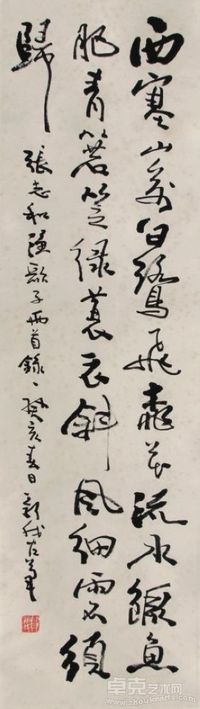 西塞山前白鷺飛桃花流水鱖魚
肥青箬笠綠蓑衣斜風細雨不須
歸
張志和漁歌子兩首錄一癸亥春日
卓克艺术网